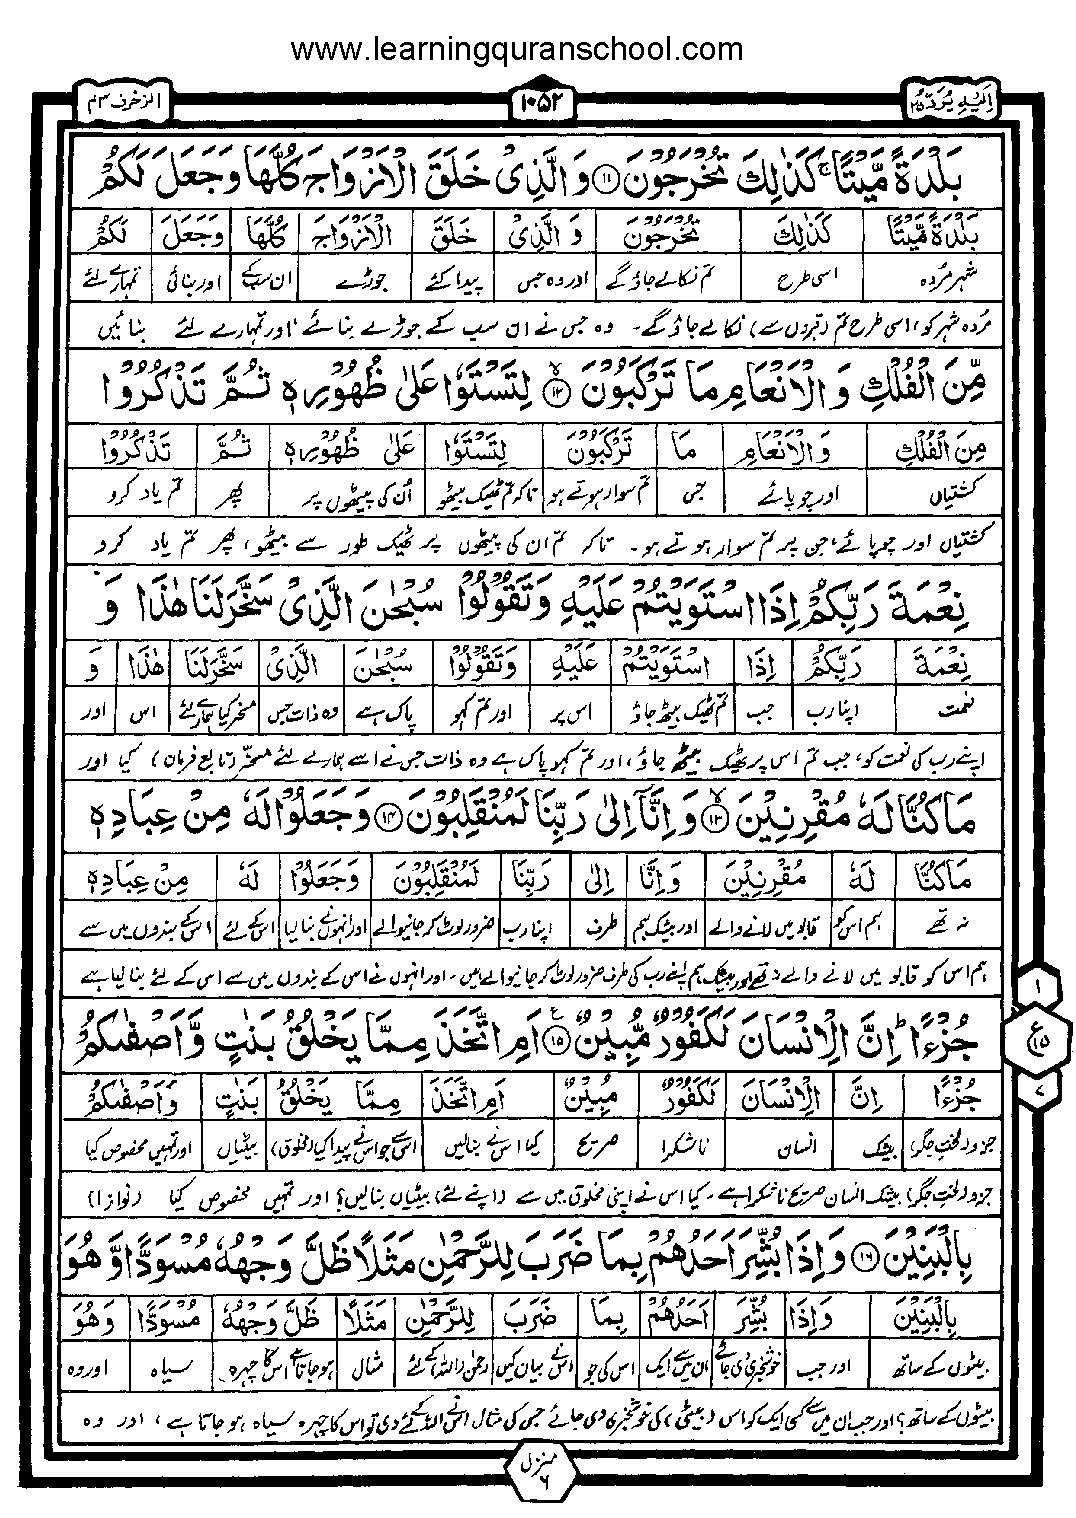 www.learningquranschool.com
اِلَیْهِ یُرَدُّ ۲۵ ۱۰۵۲ الزخرف ۴۳
بَلْدَةً مَّیْتًا ۚ كَذٰلِكَ تُخْرَجُوْنَ ۝۱۱ وَ الَّذِیْ خَلَقَ الْاَزْوَاجَ كُلَّهَا وَ جَعَلَ لَكُمْ
بَلْدَةً مَّیْتًا كَذٰلِكَ تُخْرَجُوْنَ وَ الَّذِیْ خَلَقَ الْاَزْوَاجَ كُلَّهَا وَجَعَلَ لَكُمْ
شہر مُردہ اسی طرح تم نکالے جاؤ گے اور وہ جس پیدا کئے جوڑے ان سب کے اور بنائی تمہارے لئے
مُردہ شہر کو، اسی طرح تم (قبروں سے) نکالے جاؤ گے۔ وہ جس نے ان سب کے جوڑے بنائے اور تمہارے لئے بنائیں
مِّنَ الْفُلْكِ وَ الْاَنْعَامِ مَا تَرْكَبُوْنَ ۝۱۲ لِتَسْتَوٗا عَلٰی ظُهُوْرِهٖ ثُمَّ تَذْكُرُوْا
مِنَ الْفُلْكِ وَ الْاَنْعَامِ مَا تَرْكَبُوْنَ لِتَسْتَوٗا عَلٰی ظُهُوْرِهٖ ثُمَّ تَذْكُرُوْا
کشتیاں اور چوپائے جس تم سوار ہوتے ہو تاکہ تم ٹھیک بیٹھو اُن کی پیٹھوں پر پھر تم یاد کرو
کشتیاں اور چوپائے، جن پر تم سوار ہوتے ہو۔ تاکہ تم ان کی پیٹھوں پر ٹھیک طور سے بیٹھو، پھر تم یاد کرو
نِعْمَةَ رَبِّكُمْ اِذَا اسْتَوَیْتُمْ عَلَیْهِ وَ تَقُوْلُوْا سُبْحٰنَ الَّذِیْ سَخَّرَ لَنَا هٰذَا وَ
نِعْمَةَ رَبِّكُمْ اِذَا اسْتَوَیْتُمْ عَلَیْهِ وَتَقُوْلُوْا سُبْحٰنَ الَّذِیْ سَخَّرَ لَنَا هٰذَا وَ
نعمت اپنا رب جب تم ٹھیک بیٹھ جاؤ اس پر اور تم کہو پاک ہے وہ ذات جس مسخر کیا ہمارے لئے اس اور
اپنے رب کی نعمت کو، جب تم اس پر ٹھیک بیٹھ جاؤ، اور تم کہو پاک ہے وہ ذات جس نے اسے ہمارے لئے مسخّر (تابع فرمان) کیا اور
مَا كُنَّا لَهٗ مُقْرِنِیْنَ ۝۱۳ وَ اِنَّاۤ اِلٰی رَبِّنَا لَمُنْقَلِبُوْنَ ۝۱۴ وَ جَعَلُوْا لَهٗ مِنْ عِبَادِهٖ
مَا كُنَّا لَهٗ مُقْرِنِیْنَ وَ اِنَّا اِلٰی رَبِّنَا لَمُنْقَلِبُوْنَ وَجَعَلُوْا لَهٗ مِنْ عِبَادِهٖ
نہ تھے ہم اس کو قابو میں لانے والے اور بیشک ہم طرف اپنا رب ضرور لوٹ کر جانیوالے اور انہوں نے بنا لیا اس کے لئے اس کے بندوں میں سے
ہم اس کو قابو میں لانے والے نہ تھے، اور بیشک ہم اپنے رب کی طرف ضرور لوٹ کر جانیوالے ہیں۔ اور انہوں نے اس کے بندوں میں سے اس کے لئے بنا لیا ہے
۱ ع ۱۵ ۷
جُزْءًا ؕ اِنَّ الْاِنْسَانَ لَكَفُوْرٌ مُّبِیْنٌ ۝۱۵ اَمِ اتَّخَذَ مِمَّا یَخْلُقُ بَنٰتٍ وَّ اَصْفٰىكُمْ
جُزْءًا اِنَّ الْاِنْسَانَ لَكَفُوْرٌ مُّبِیْنٌ اَمِ اتَّخَذَ مِمَّا یَخْلُقُ بَنٰتٍ وَاَصْفٰىكُمْ
جزو (لختِ جگر) بیشک انسان ناشکرا صریح کیا اس نے بنالیں اس سے جو اس نے پیدا کیا (مخلوق) بیٹیاں اور تمہیں مخصوص کیا
جزو (لختِ جگر) بیشک انسان صریح ناشکرا ہے۔ کیا اس نے اپنی مخلوق میں سے (اپنے لئے) بیٹیاں بنالیں؟ اور تمہیں مخصوص کیا (نوازا)
بِالْبَنِیْنَ ۝۱۶ وَ اِذَا بُشِّرَ اَحَدُهُمْ بِمَا ضَرَبَ لِلرَّحْمٰنِ مَثَلًا ظَلَّ وَجْهُهٗ مُسْوَدًّا وَّ هُوَ
بِالْبَنِیْنَ وَاِذَا بُشِّرَ اَحَدُهُمْ بِمَا ضَرَبَ لِلرَّحْمٰنِ مَثَلًا ظَلَّ وَجْهُهٗ مُسْوَدًّا وَهُوَ
بیٹوں کے ساتھ اور جب خوشخبری دی جائے ان میں سے ایک اس کی جو اس نے بیان کیں رحمٰن (اللہ) کے لئے مثال ہو جاتا ہے اس کا چہرہ سیاہ اور وہ
بیٹوں کے ساتھ؟ اور جب ان میں سے کسی ایک کو اس (بیٹی) کی خوشخبری دی جائے جس کی مثال اس نے اللہ کے لئے دی تو اس کا چہرہ سیاہ ہو جاتا ہے، اور وہ
منزل ۶